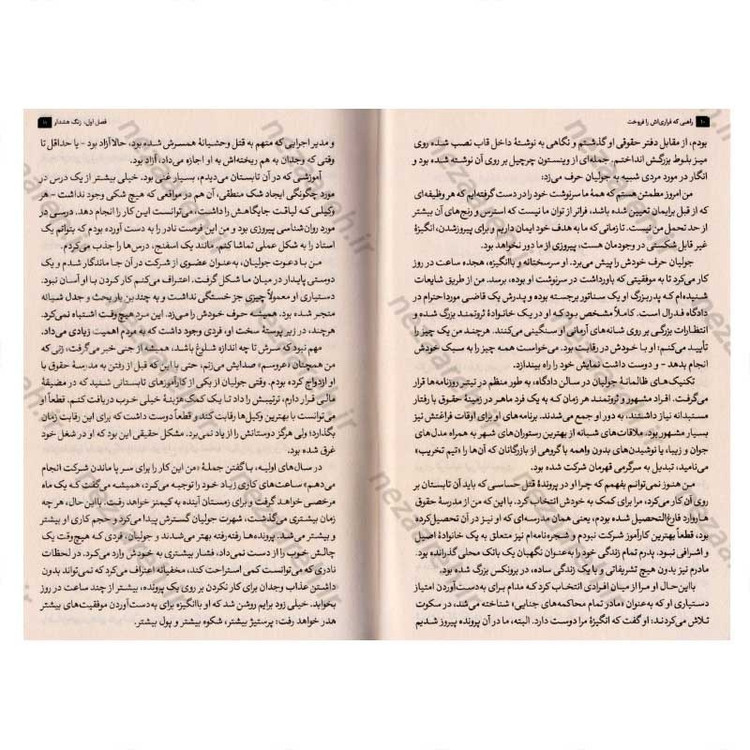 ۱۰ راهبی که فراری‌اش را فروخت
بودم، از مقابل دفتر حقوقی او گذشتم و نگاهی به نوشتهٔ داخل قاب نصب شده روی
میز بلوط بزرگش انداختم. جمله‌ای از وینستون چرچیل بر روی آن نوشته شده بود و
انگار در مورد مردی شبیه به جولیان حرف می‌زد:
من امروز مطمئن هستم که همهٔ ما سرنوشت خود را در دست گرفته‌ایم که هر وظیفه‌ای
که از قبل برایمان تعیین شده باشد، فراتر از توان ما نیست که استرس و رنج‌های آن بیشتر
از حد تحمل من نیست. تا زمانی که ما به هدف خود ایمان داریم و برای پیروزشدن، انگیزهٔ
غیر قابل شکستی در وجودمان هست، پیروزی از ما دور نخواهد بود.
جولیان حرف خودش را پیش می‌برد. او سرسختانه و باانگیزه، هجده ساعت در روز
کار می‌کرد تا به موفقیتی که باورداشت در سرنوشت او بوده، برسد. من از طریق شایعات
شنیده‌ام که پدربزرگ او یک سناتور برجسته بوده و پدرش یک قاضی مورداحترام در
دادگاه فدرال است. کاملاً مشخص بود که او در یک خانوادهٔ ثروتمند بزرگ شده و
انتظارات بزرگی بر روی شانه‌های آرمانی او سنگینی می‌کنند. هرچند من یک چیز را
تأیید می‌کنم؛ او با خودش در رقابت بود. می‌خواست همه چیز را به سبک خودش
انجام بدهد - و دوست داشت نمایش خود را راه بیندازد.
تکنیک‌های ظالمانهٔ جولیان در سالن دادگاه، به طور منظم در تیتر روزنامه‌ها قرار
می‌گرفت. افراد مشهور و ثروتمند هر زمان که به یک فرد ماهر در زمینهٔ حقوق با رفتار
مستبدانه نیاز داشتند، به دور او جمع می‌شدند. برنامه‌های او برای اوقات فراغتش نیز
بسیار مشهور بود. ملاقات‌های شبانه از بهترین رستوران‌های شهر به همراه مدل‌های
جوان و زیبا، یا نوشیدن‌های بدون واهمه با گروهی از بازرگانان که آن‌ها را «تیم تخریب»
می‌نامید، تبدیل به سرگرمی قهرمان شرکت شده بود.
من هنوز نمی‌توانم بفهمم که چرا او در پروندهٔ قتل حساسی که باید آن تابستان بر
روی آن کار می‌کرد، مرا برای کمک به خودش انتخاب کرد. با این که من از مدرسهٔ حقوق
هاروارد فارغ‌التحصیل شده بودم، یعنی همان مدرسه‌ای که او نیز در آن تحصیل‌کرده
بود، قطعاً بهترین کارآموز شرکت نبودم و شجره‌نامه‌ام نیز متعلق به یک خانوادهٔ اصیل
و اشرافی نبود. پدرم تمام زندگی خود را به‌عنوان نگهبان یک بانک محلی گذرانده بود.
مادرم نیز بدون هیچ تشریفاتی و با یک زندگی ساده، در برونکس بزرگ شده بود.
بااین‌حال او مرا از میان افرادی انتخاب کرد که مدام برای به‌دست‌آوردن امتیاز
دستیاری او که به‌عنوان «مادر تمام محاکمه‌های جنایی» شناخته می‌شد، در سکوت
تلاش می‌کردند؛ او گفت که انگیزهٔ مرا دوست دارد. البته، ما در آن پرونده پیروز شدیم
فصل اول، زنگ هشدار ۱۱
و مدیر اجرایی که متهم به قتل وحشیانهٔ همسرش شده بود، حالا آزاد بود - یا حداقل تا
وقتی که وجدان به هم ریخته‌اش به او اجازه می‌داد، آزاد بود.
آموزشی که در آن تابستان می‌دیدم، بسیار غنی بود. خیلی بیشتر از یک درس در
مورد چگونگی ایجاد شک منطقی، آن هم در مواقعی که هیچ شکی وجود نداشت - هر
وکیلی که لیاقت جایگاهش را داشت، می‌توانست این کار را انجام دهد. درسی در
مورد روان‌شناسی پیروزی بود و من این فرصت نادر را به دست آورده بودم که بتوانم یک
استاد را به شکل عملی تماشا کنم. مانند یک اسفنج، درس‌ها را جذب می‌کردم.
من با دعوت جولیان، به‌عنوان عضوی از شرکت در آن جا ماندگار شدم و یک
دوستی پایدار در میان ما شکل گرفت. اعتراف می‌کنم کار کردن با او آسان نبود.
دستیاری او معمولاً چیزی جز خستگی نداشت و به چندین بار بحث و جدل شبانه
منجر شده بود. همیشه حرف خودش را می‌زد. این مرد هیچ وقت اشتباه نمی‌کرد.
هرچند، در زیر پوستهٔ سخت او، فردی وجود داشت که به مردم اهمیت زیادی می‌داد.
مهم نبود که سرش تا چه اندازه شلوغ باشد، همیشه از جنی خبر می‌گرفت، زنی که
من همچنان «عروسم» صدایش می‌زنم، حتی با این که قبل از رفتن به مدرسهٔ حقوق با
او ازدواج کرده بودم. وقتی جولیان از یکی از کارآموزهای تابستانی شنید که در مضیقهٔ
مالی قرار دارم، ترتیبش را داد تا یک کمک هزینهٔ خیلی خوب دریافت کنم. قطعاً او
می‌توانست با بهترین وکیل‌ها رقابت کند و قطعاً دوست داشت که برای این رقابت زمان
بگذارد؛ ولی هرگز دوستانش را از یاد نمی‌برد. مشکل حقیقی این بود که او در شغل خود
غرق شده بود.
در سال‌های اولیه، با گفتن جملهٔ «من این کار را برای سر پا ماندن شرکت انجام
می‌دهم» ساعت‌های کاری زیاد خود را توجیه می‌کرد، همیشه می‌گفت که یک ماه
مرخصی خواهد گرفت و برای زمستان آینده به کیمنز خواهد رفت. بااین‌حال، هرچه
زمان بیشتری می‌گذشت، شهرت جولیان گسترش پیدا می‌کرد و حجم کاری او بیشتر
و بیشتر می‌شد. پرونده‌ها رفته‌رفته بهتر می‌شدند و جولیان، فردی که هیچ‌وقت یک
چالش خوب را از دست نمی‌داد، فشار بیشتری به خودش وارد می‌کرد. در لحظات
نادری که می‌توانست کمی استراحت کند، مخفیانه اعتراف می‌کرد که نمی‌تواند بدون
داشتن عذاب وجدان برای کار نکردن بر روی یک پرونده، بیشتر از چند ساعت در روز
بخوابد. خیلی زود برایم روشن شد که او باانگیزه برای به‌دست‌آوردن موفقیت‌های بیشتر
هدر خواهد رفت؛ پرستیژ بیشتر، شکوه بیشتر و پول بیشتر.
nezaareh.ir